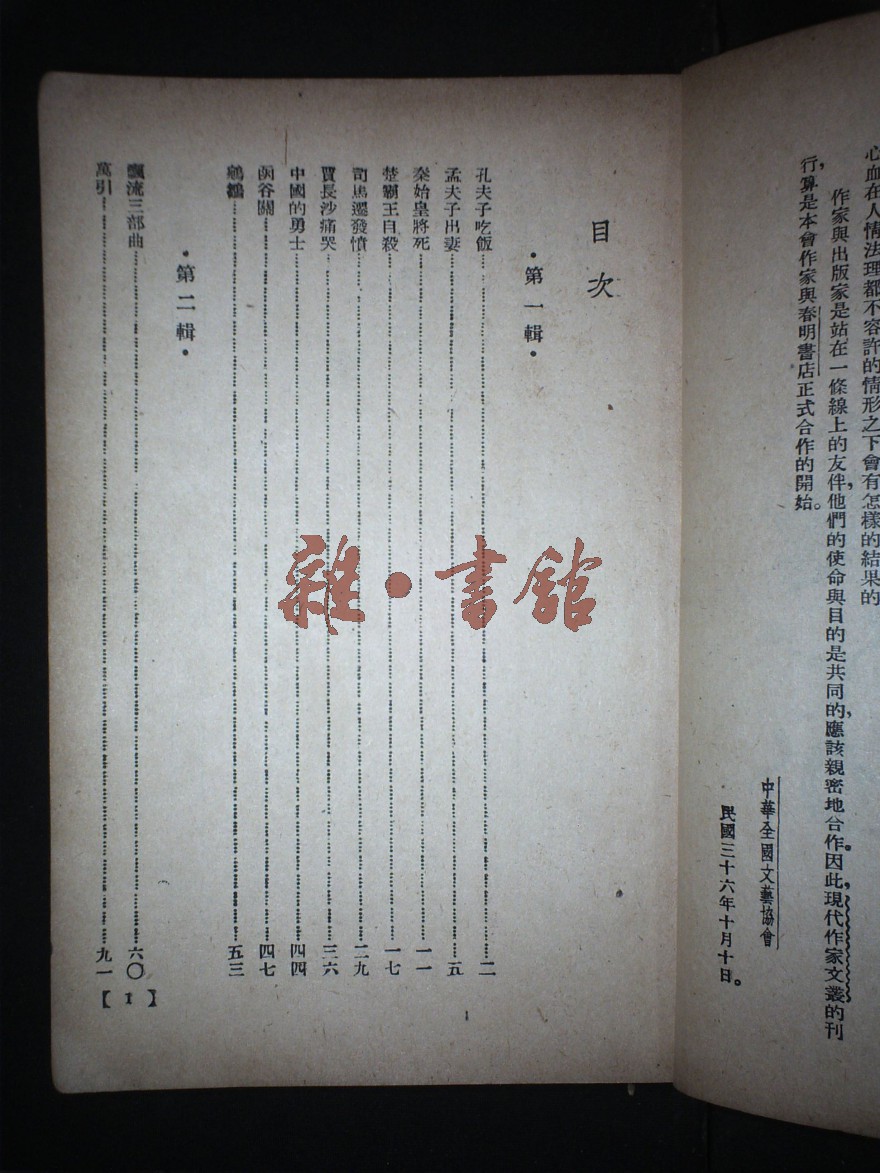 心血在人情法理都不容許的情形之下會有怎樣的結果的
作家與出版家是站在一條線上的友伴，他們的使命與目的是共同的，應該親密地合作。因此，現代作家文叢的刊
行，算是本會作家與春明書店正式合作的開始。
中華全國文藝協會
民國三十六年十月十日。
目次
•第一輯•
孔夫子吃飯……二
孟夫子出妻……五
秦始皇將死……一一
楚霸王自殺……一七
司馬遷發憤……二九
賈長沙痛哭……三六
中國的勇士……四四
函谷關……四七
鵷鶵……五三
•第二輯•
飄流三部曲……六〇
萬引……九一
【1】
雜•書館